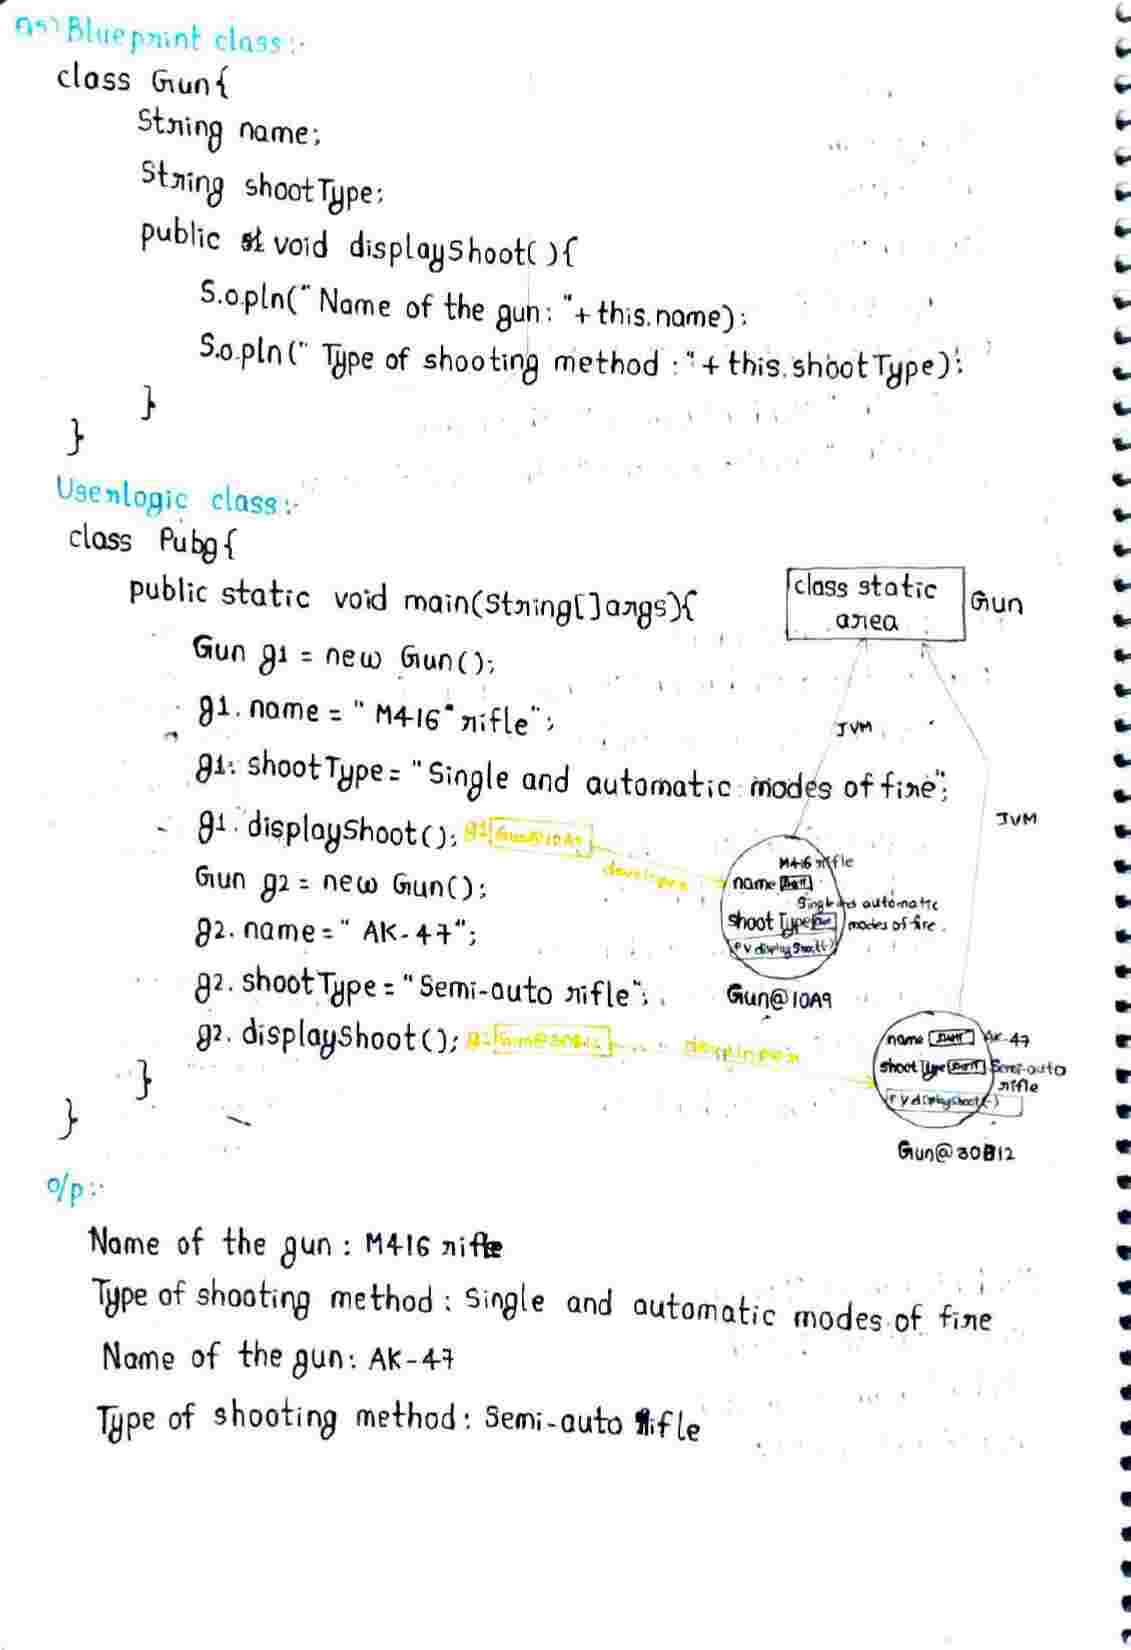 Q5) Blueprint class:-
class Gun{
String name;
String shootType;
public void displayShoot( ){
S.o.pln(" Name of the gun: "+ this.name);
S.o.pln(" Type of shooting method : "+ this.shootType);
}
}
Userlogic class:-
class Pubg{
public static void main(String[]args){
Gun g1 = new Gun();
g1.name = " M416 rifle";
g1.shootType= "Single and automatic modes of fire";
g1.displayShoot();
Gun g2 = new Gun();
g2.name=" AK-47";
g2.shootType="Semi-auto rifle";
g2.displayShoot();
}
}
class static
area
Gun
JVM
JVM
g1 Gun@10A9
developer
M416 rifle
name
Single and automatic
shoot Type modes of fire.
p v displayShoot()
Gun@10A9
g2
name AK-47
shootType Semi-auto
rifle
p v displayShoot()
Gun@30B12
o/p:-
Name of the gun : M416 rifle
Type of shooting method : Single and automatic modes of fire
Name of the gun: AK-47
Type of shooting method : Semi-auto rifle